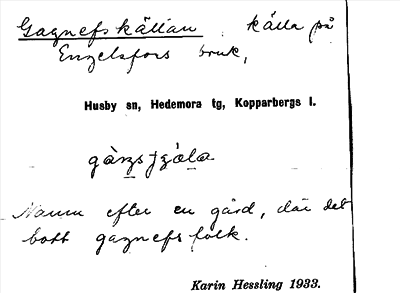 Gagnefskällan källa på
Engelsfors bruk,
Husby sn, Hedemora tg, Kopparbergs l.
Namn efter en gård, där det
bott gagnefsfolk.
Karin Hessling 1933.